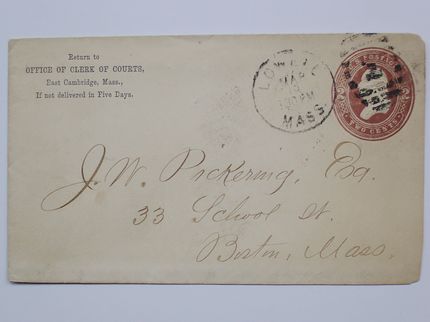 Return to
OFFICE OF CLERK OF COURTS,
East Cambridge, Mass.,
If not delivered in Five Days.
MAR
MASS
TWO CENTS
J. W. Pickering, Esq.
33 School St.
Boston, Mass.